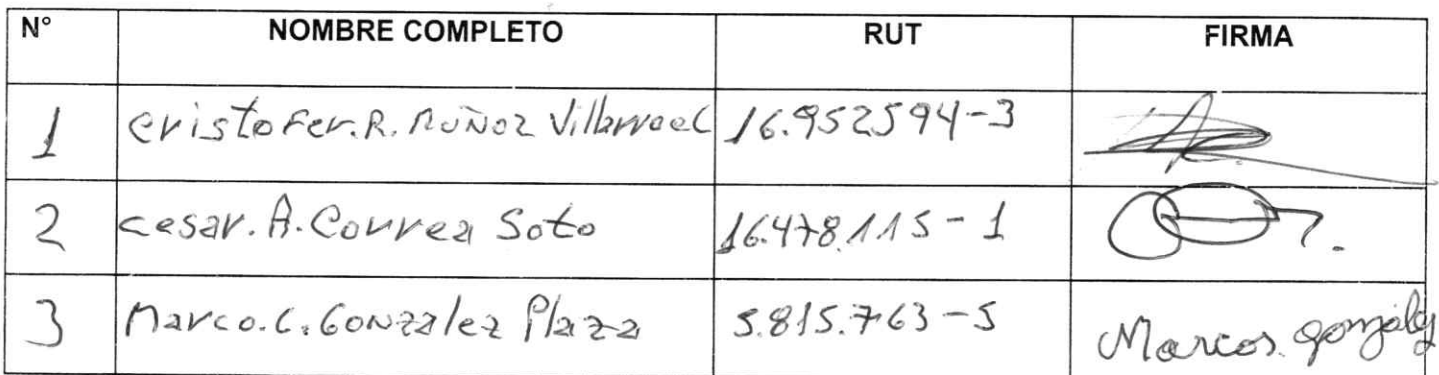 N° NOMBRE COMPLETO RUT FIRMA
1 cristofer.R. MUÑOZ Villarroel 16.952594-3
2 cesar.A.Correa Soto 16.478.115-1
3 Marco.C.Gonzalez Plaza 5.815.763-5 Marcos gonzalez